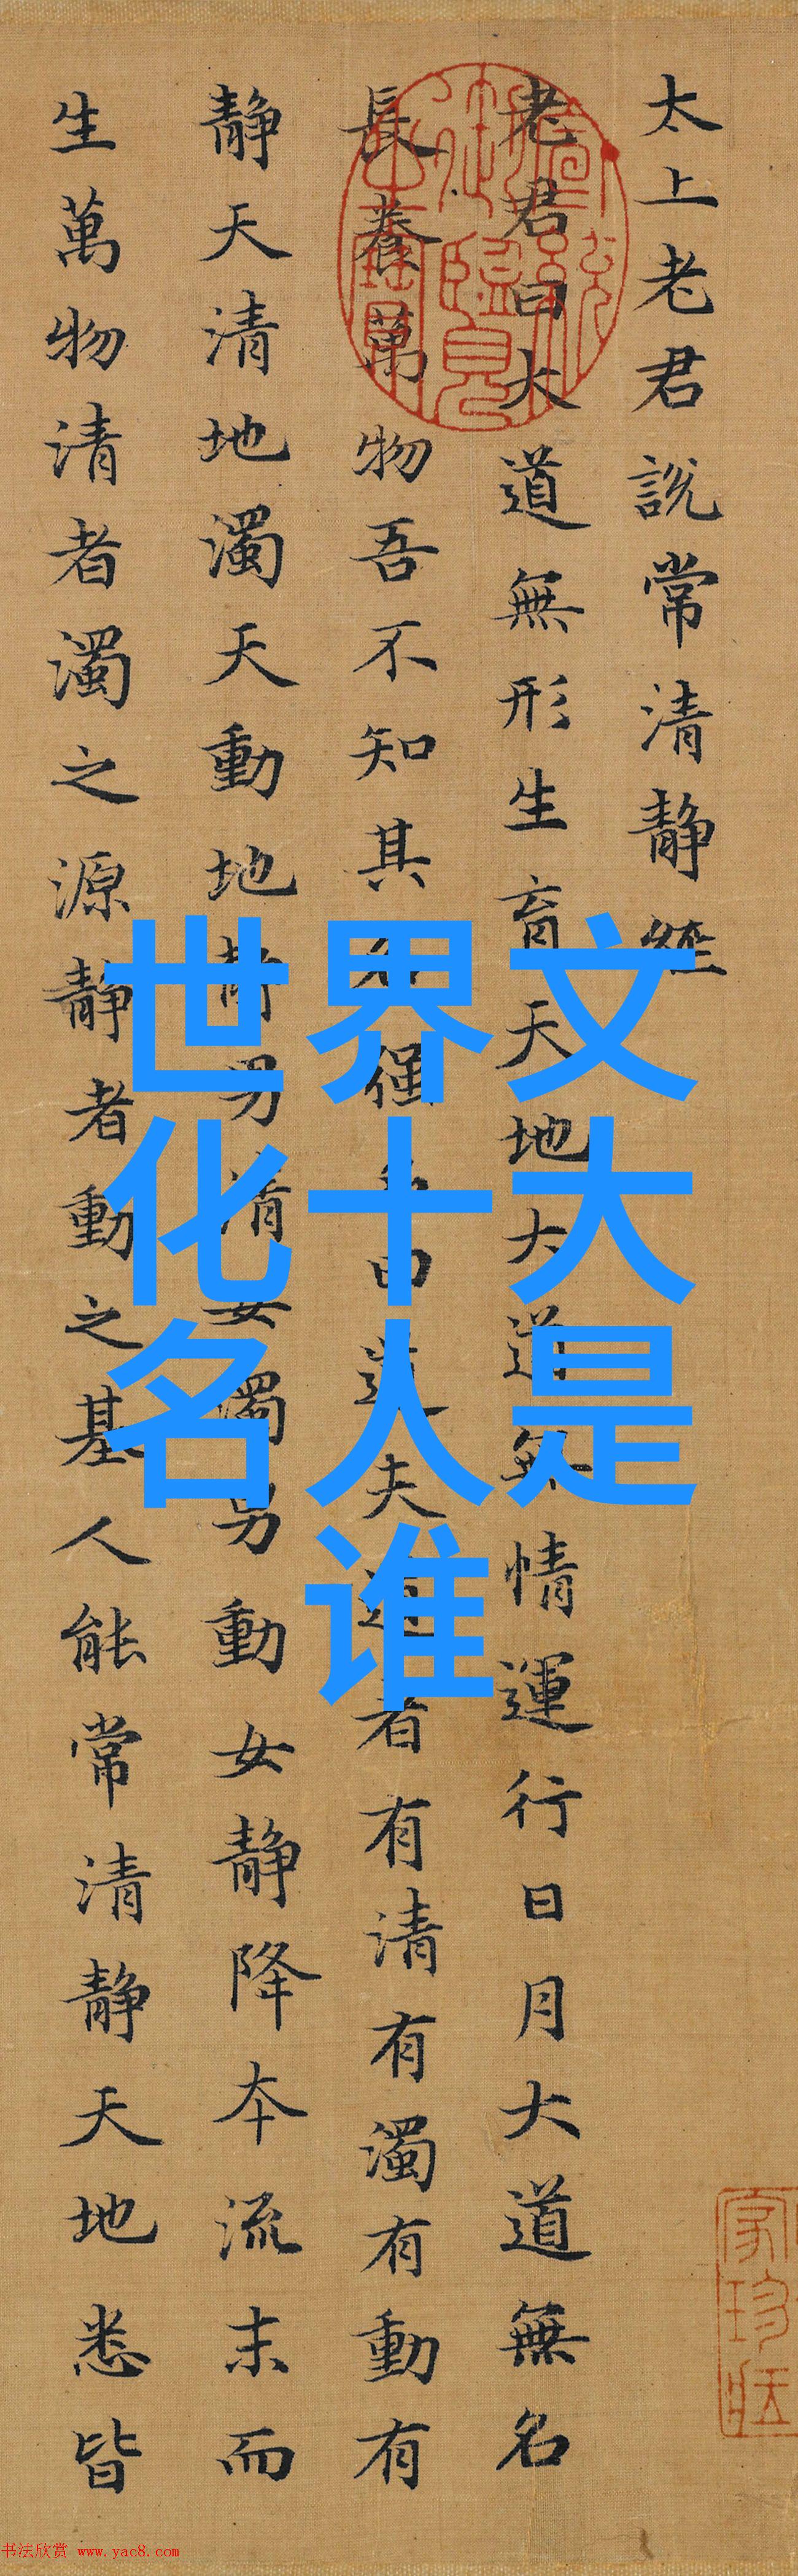 太上老君說常清静經
老君曰大道無形生育天地大道無情運行日月大道無名
長養萬物吾不知其名強名曰道夫道者有清有濁有動有
静天清地濁天動地静男清女濁男動女静降夲流末而
生萬物清者濁之源静者動之基人能常清静天地悉皆
世界文
化十大
名人是
谁
书法欣赏 www.yac8.com